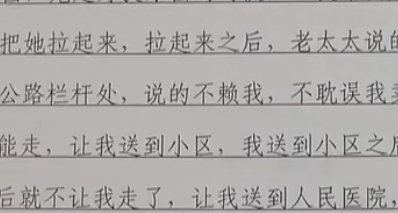 把她拉起来，拉起来之后，老太太说的
公路栏杆处，说的不赖我，不耽误我卖
能走，让我送到小区，我送到小区之后
后就不让我走了，让我送到人民医院，